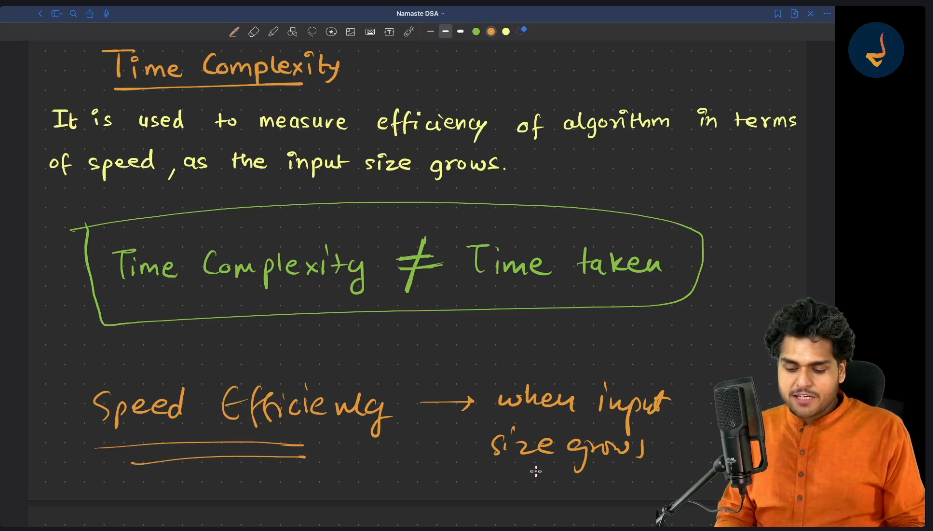 Namaste DSA
Time Complexity
It is used to measure efficiency of algorithm in terms
of speed, as the input size grows.
Time Complexity ≠ Time taken
Speed Efficiency → when input
size grows